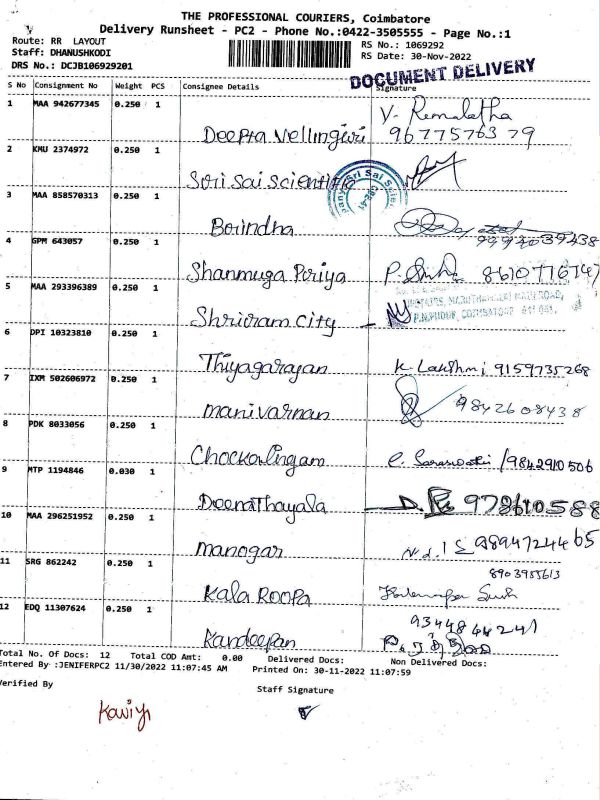 THE PROFESSIONAL COURIERS, Coimbatore
Delivery Runsheet - PC2 - Phone No.:0422-3505555 - Page No.:1
Route: RR LAYOUT
RS No.: 1069292
Staff: DHANUSHKODI
RS Date: 30-Nov-2022
DRS No.: DCJB106929201
DOCUMENT DELIVERY
S No Consignment No Weight PCS Consignee Details Signature
1 MAA 942677345 0.250 1
Deepra Vellingiri
V. Remalatha
9677576379
2 KMU 2374972 0.250 1
Sori Sai Scientific
Sri Sai Scien
3 MAA 858570313 0.250 1
Borindha
9994039438
4 GPM 643057 0.250 1
Shanmuga Poriya P.
5 MAA 293396389 0.250 1
Shrioram City
6 DPI 10323810 0.250 1
Thiyagarajan K. Lakshmi 9159735268
7 IXM 502606972 0.250 1
Manivarnan 9842608438
8 PDK 8033056 0.250 1
Chockalingam C. Saraswathi /9842910506
9 MTP 1194846 0.030 1
Deenathayala
10 MAA 296251952 0.250 1
Manogar 9894724465
11 SRG 862242 0.250 1
8903955613
Kala Roopa
12 EDQ 11307624 0.250 1
9344844241
Kandeepan
Total No. Of Docs: 12 Total COD Amt: 0.00 Delivered Docs: Non Delivered Docs:
Entered By :JENIFERPC2 11/30/2022 11:07:45 AM Printed On: 30-11-2022 11:07:59
Verified By
Staff Signature
Kaviya